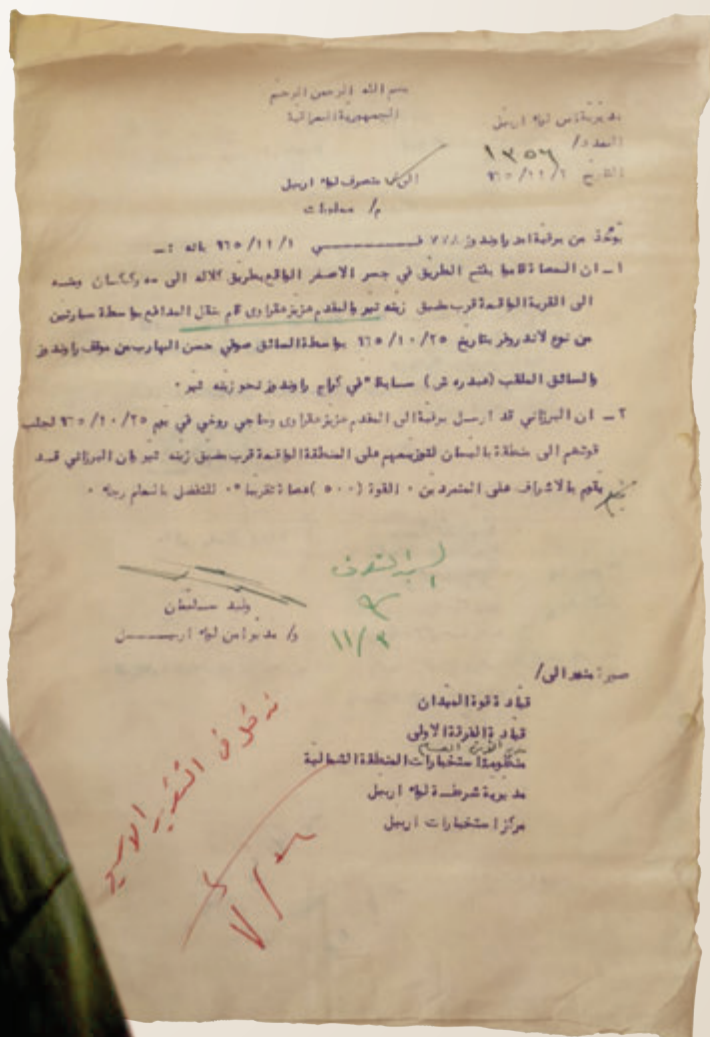 بسم الله الرحمن الرحيم
الجمهورية العراقية
مديرية امن لواء اربيل
العدد/ ١٣٥٦
التاريخ ٩٦٥/١١/٢
الى/ متصرف لواء اربيل
م/ معلومات
من برقية امن راوندوز ٧٧٨ فـــي ٩٦٥/١١/١ بانه :ـ
١ـ ان العصاة قاموا بفتح الطريق في جسر الاصفر الواقع بطريق كلاله الى ومنه
الى القرية الواقعة قرب مضيق زينه تير والمقدم عزيز عقراوى قام بنقل المدافع بواسطة سيارتين
من نوع لاندروفر بتاريخ ٩٦٥/١٠/٢٥ بواسطة السائق صوفي حسن الهارب من موقف راوندوز
والسائق الملقب (عبدره ش) سابقا" في كراج راوندوز نحو زينه تير ٠
٢ـ ان البرزاني قد ارسل برقية الى المقدم عزيز عقراوى وحاجي روخي في يوم ٩٦٥/١٠/٢٥ لجلب
قوتهم الى منطقة باليسان لتوزيعهم على المنطقة الواقعة قرب مضيق زينه تير وان البرزاني قد
يقوم بالاشراف على المتمردين ٠ القوة (٥٠٠) عصاة تقريبا" ٠ للتفضل بالعلم رجاء ٠
وليد سلمان
و/ مدير امن لواء اربيـــل
١١/٣
صورة منه الى/
قيادة قوة الميدان
قيادة الفرقة الاولى
منظومة استخبارات المنطقة الشمالية
مديرية شرطة لواء اربيل
مركز استخبارات اربيل